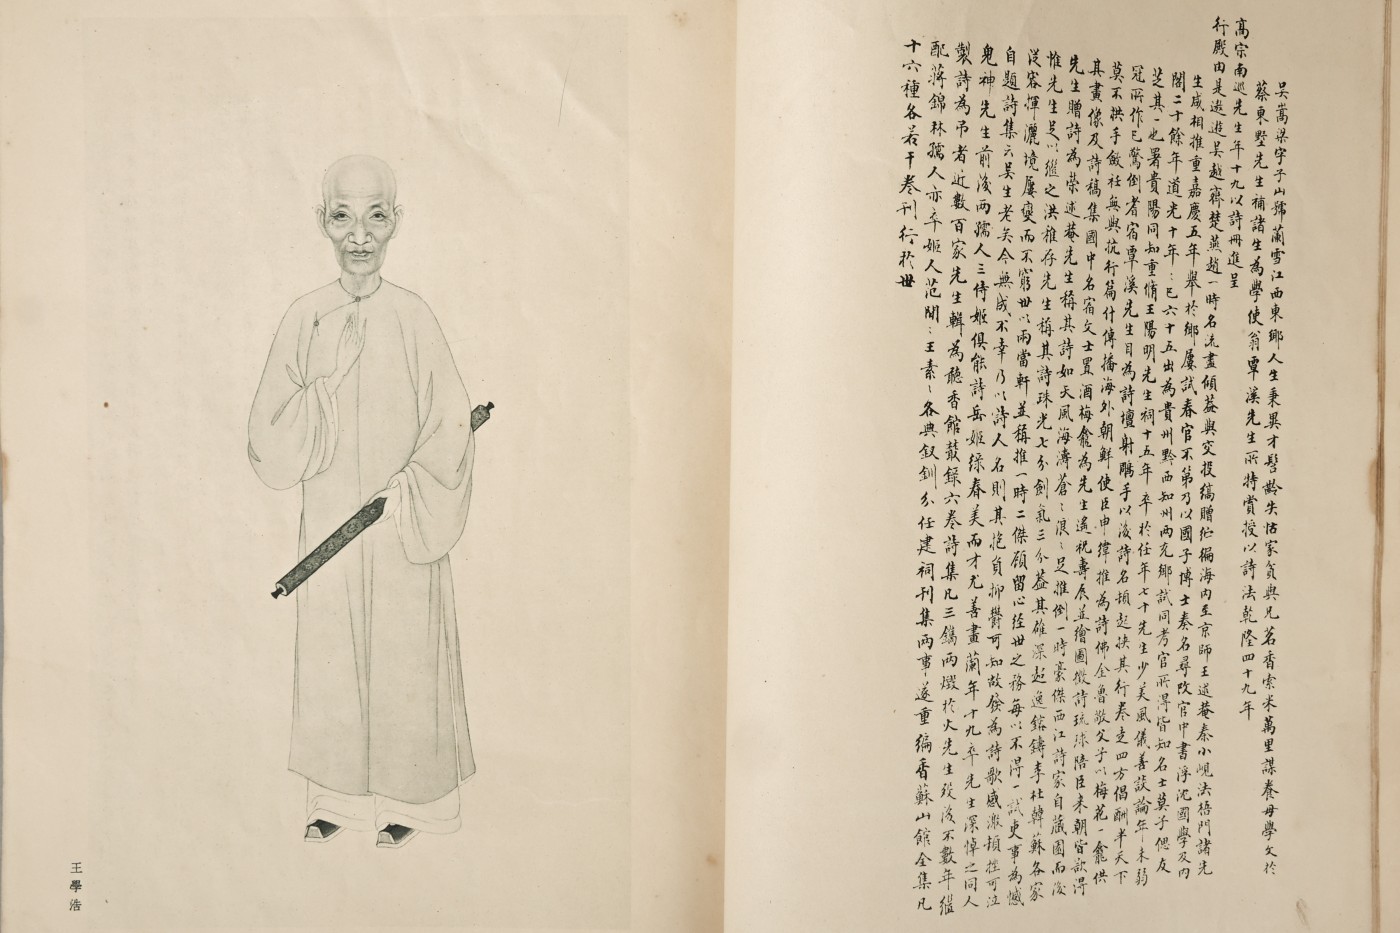 吳嵩梁字子山號蘭雪江西東鄉人生秉異才髫齡失怙家貧與兄茗香索米萬里謀養母學文於
蔡東墅先生補諸生為學使翁覃溪先生所特賞授以詩法乾隆四十九年
高宗南巡先生年十九以詩冊進呈
行殿由是遨遊吳越齊楚燕趙一時名流盡傾蓋與交投縞贈紵徧海內至京師王述菴秦小峴法梧門諸先
生咸相推重嘉慶五年舉於鄉屢試春官不第乃以國子博士奏名尋改官中書浮沈國學及內
閣二十餘年道光十年已六十五出為貴州黔西知州兩充鄉試同考官所得皆知名士莫子偲友
芝其一也署貴陽同知重脩王陽明先生祠十五年卒於任年七十先生少美風儀善談論年未弱
冠所作已驚倒耆宿覃溪先生目為詩壇射鵰手以後詩名頓起挾其行卷走四方倡酬半天下
莫不拱手斂衽無與抗行篇什傳播海外朝鮮使臣申緯推為詩佛金魯敬父子以梅花一龕供
其畫像及詩稿集國中名宿文士置酒梅龕為先生遙祝壽辰並繪圖徵詩琉球陪臣來朝皆欲得
先生贈詩為榮述菴先生稱其詩如天風海濤蒼〻浪〻足推倒一時豪傑西江詩家自藏園而後
惟先生足以繼之洪稚存先生稱其詩珠光七分劍氣三分蓋其雄深超逸鎔鑄李杜韓蘇各家
從容揮灑境屢變而不窮世以兩當軒並稱推一時二傑顧留心經世之務每以不得一試吏事為憾
自題詩集云吳生老矣今無成不幸乃以詩人名則其抱負抑鬱可知故發為詩歌感激頓挫可泣
鬼神先生前後兩孺人三侍姬俱能詩岳姬綠春美而才尤善畫蘭年十九卒先生深悼之同人
製詩為弔者近數百家先生輯為聽香館叢錄六卷詩集凡三鐫兩燬於火先生歿後不數年繼
配蔣錦林孺人亦卒姬人范閒〻王素〻各典釵釧分任建祠刊集兩事遂重編香蘇山館全集凡
十六種各若干卷刊行於世
王學浩